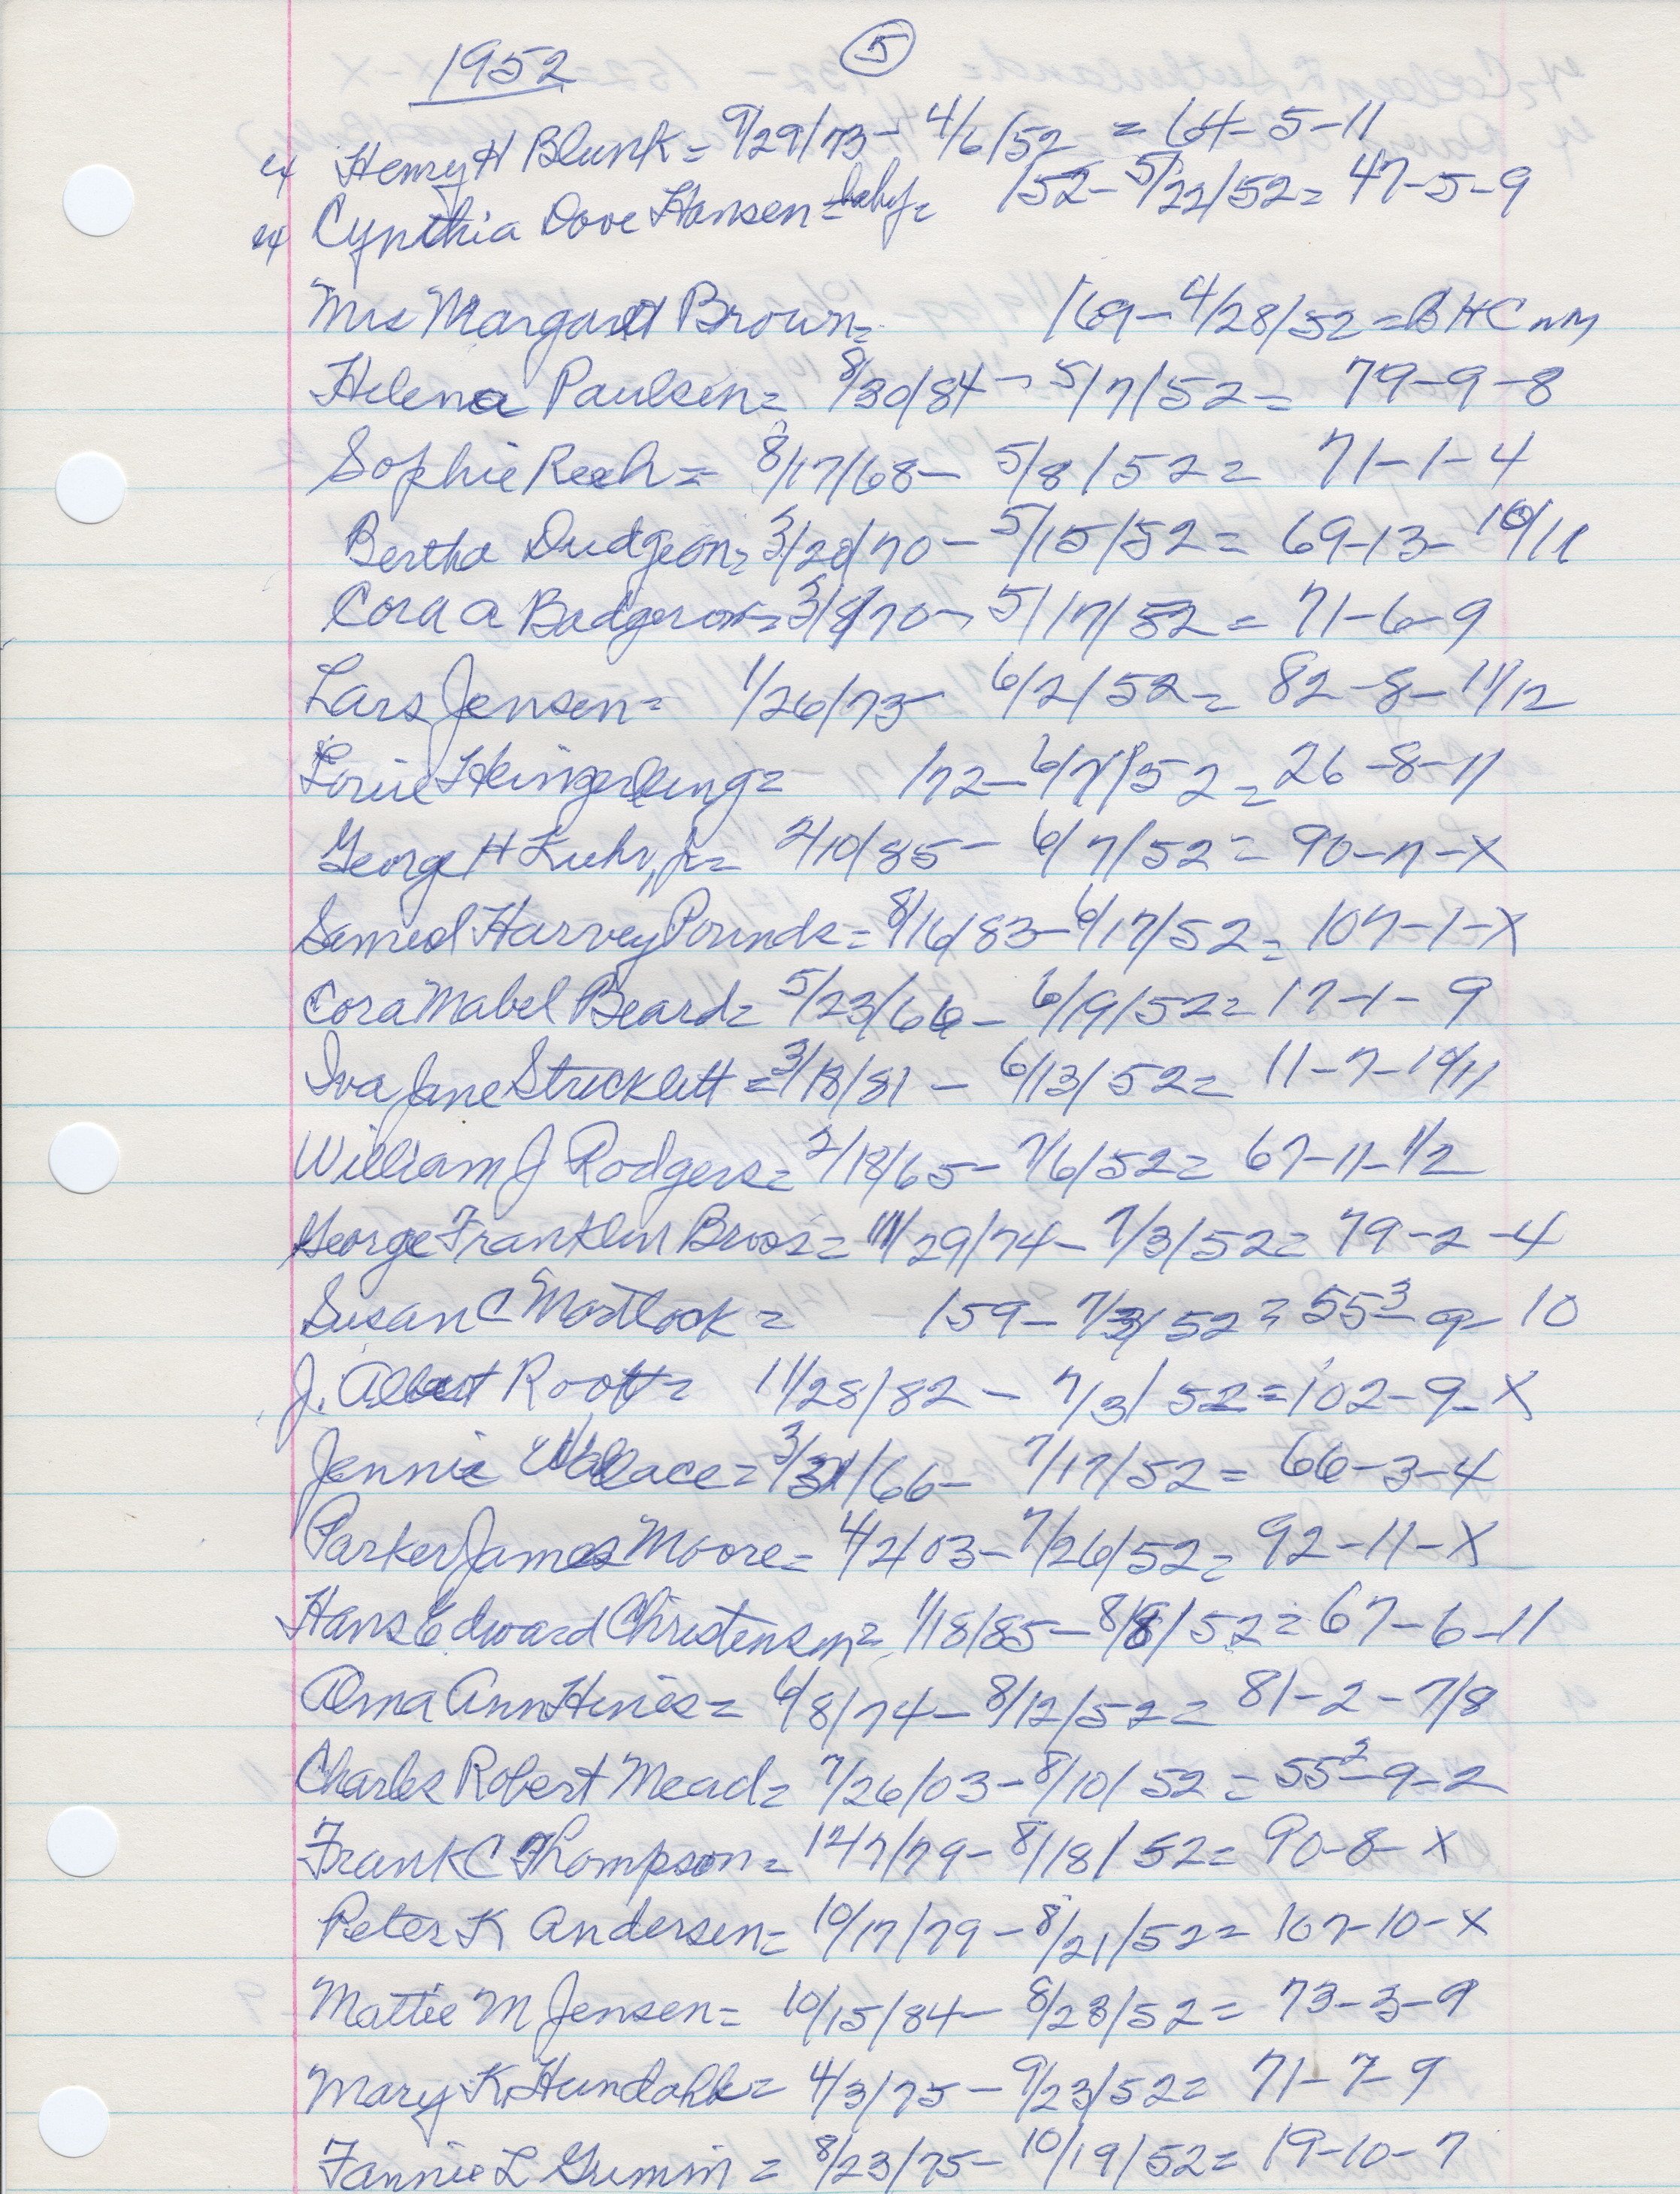 1952 5
Henry H Blunk = 9/29/73 - 4/6/52 = 64-5-11
Cynthia Dove Hansen - baby = /52 - 5/22/52 = 47-5-9
Mrs Margaret Brown = /69 - 4/28/52 = BHC nm
Helena Paulsen = 8/30/84 - 5/7/52 = 79-9-8
Sophie Reeh = 8/17/68 - 5/8/52 = 71-1-4
Bertha Dudgeon = 3/20/70 - 5/15/52 = 69-13-10/11
Cora A Badgerow = 3/8/70 - 5/17/52 = 71-6-9
Lars Jensen = 1/26/73 - 6/2/52 = 82-8-11/12
/72 - 6/7/52 = 26-8-11
George H Luhr, Jr = 2/10/85 - 6/7/52 = 90-7-X
Samuel Harvey Pounds = 8/16/83 - 6/17/52 = 107-1-X
Cora Mabel Beard = 5/23/66 - 6/19/52 = 17-1-9
Iva Jane Stricklett = 3/18/81 - 6/13/52 = 11-7-10/11
William J Rodgers = 2/18/65 - 7/6/52 = 67-11-1/2
George Franklin Broos = 11/29/74 - 7/3/52 = 79-2-4
Susan C Mortlock = /59 - 7/3/52 = 55³-9-10
J. Albert Root = 11/28/82 - 7/3/52 = 102-9-X
Jennie Wallace = 3/31/66 - 7/17/52 = 66-3-4
Parker James Moore = 4/2/03 - 7/26/52 = 92-11-X
Hans Edward Christensen = 1/18/85 - 8/8/52 = 67-6-11
Alma Ann Hines = 6/8/74 - 8/12/52 = 81-2-7/8
Charles Robert Mead = 7/26/03 - 8/10/52 = 55²-9-2
Frank C Thompson = 12/7/79 - 8/18/52 = 90-8-X
Peter K Andersen = 10/17/79 - 8/21/52 = 107-10-X
Mattie M Jensen = 10/15/84 - 8/23/52 = 73-3-9
Mary K Hundahl = 4/3/75 - 9/23/52 = 71-7-9
Fannie L Grimm = 8/23/75 - 10/19/52 = 19-10-7